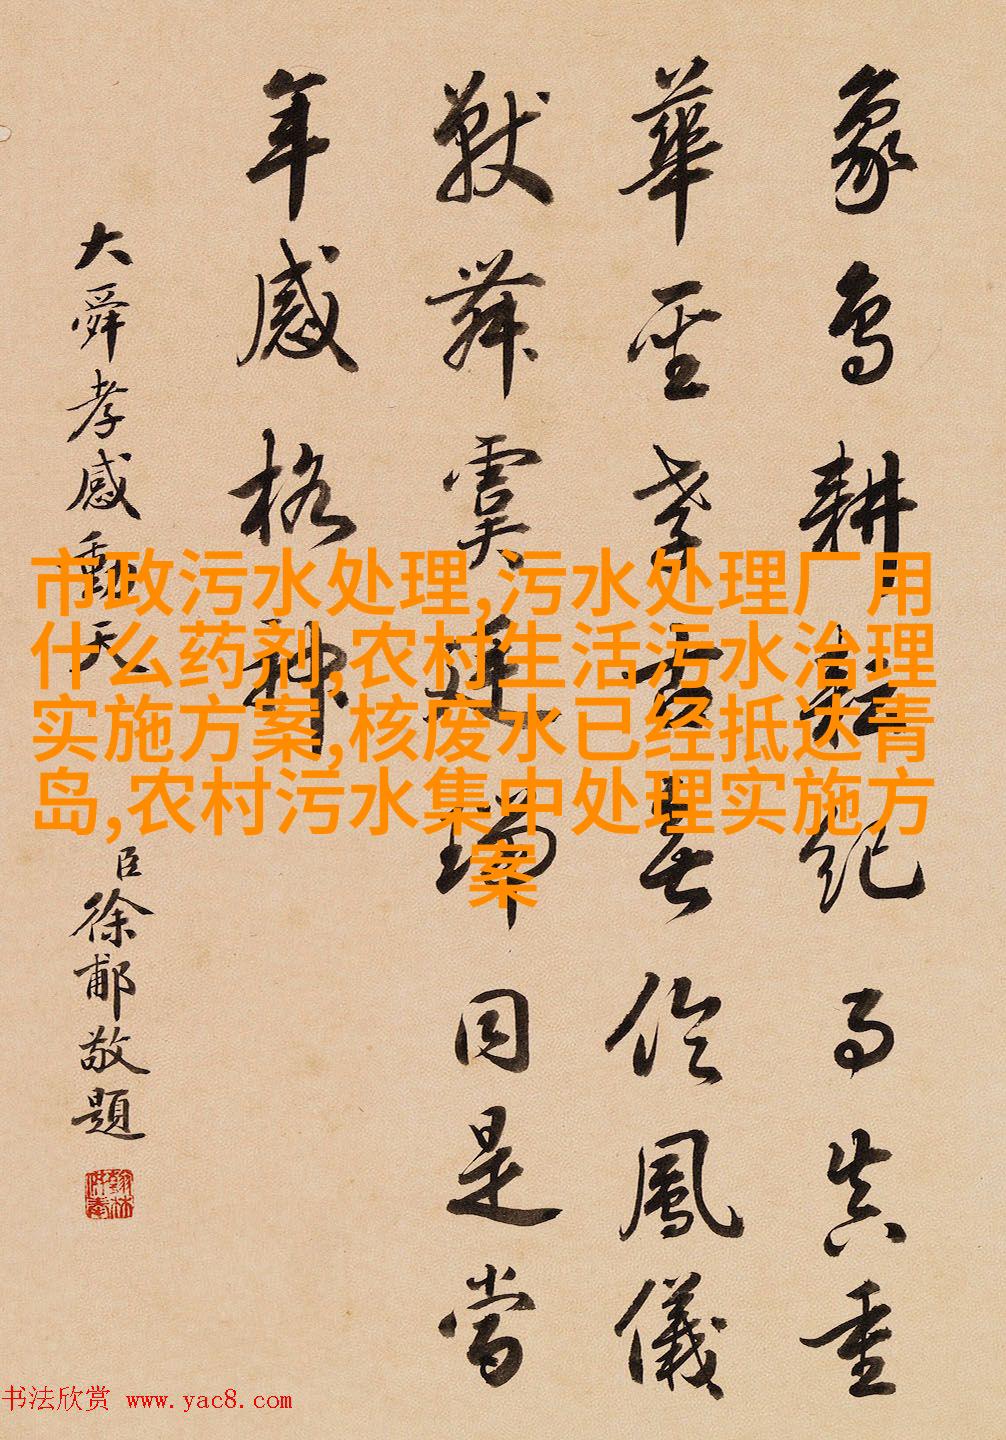 象鳥耕耘紀事真重
華至孝古無倫鳳儀
獸舞虞廷瑞同是當
年感格神
大舜孝感動天
臣徐郙敬題
市政污水处理,污水处理厂用
什么药剂,农村生活污水治理
实施方案,核废水已经抵达青
岛,农村污水集中处理实施方
案
书法欣赏 www.yac8.com